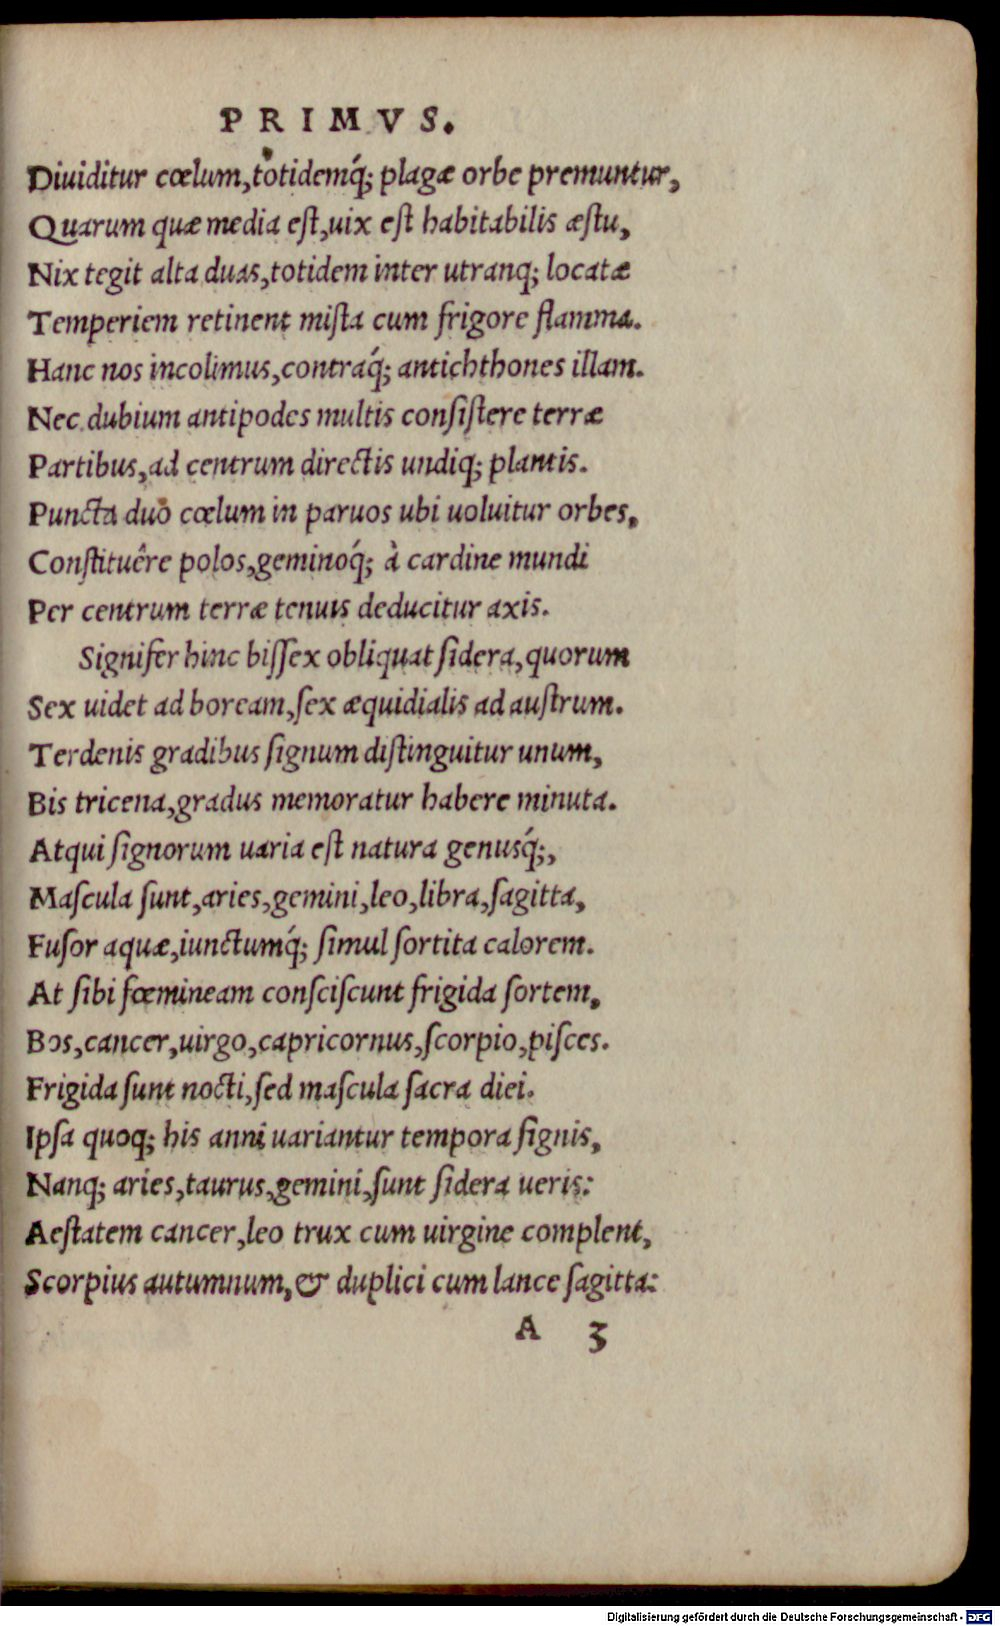 PRIMVS.
Diuiditur cœlum, totidemq́; plagæ orbe premuntur,
Quarum quæ media est, uix est habitabilis æstu,
Nix tegit alta duas, totidem inter utranq; locatæ
Temperiem retinent mista cum frigore flamma.
Hanc nos incolimus, contraq́; antichthones illam.
Nec dubium antipodes multis consistere terræ
Partibus, ad centrum directis undiq; plantis.
Puncta duo cœlum in paruos ubi uoluitur orbes,
Constituêre polos, geminoq́; à cardine mundi
Per centrum terræ tenuis deducitur axis.
Signifer hinc bissex obliquat sidera, quorum
Sex uidet ad boream, sex æquidialis ad austrum.
Terdenis gradibus signum distinguitur unum,
Bis tricena, gradus memoratur habere minuta.
Atqui signorum uaria est natura genusq́;,
Mascula sunt, aries, gemini, leo, libra, sagitta,
Fusor aquæ, iunctumq́; simul sortita calorem.
At sibi fœmineam consciscunt frigida sortem,
Bos, cancer, uirgo, capricornus, scorpio, pisces.
Frigida sunt nocti, sed mascula sacra diei.
Ipsa quoq; his anni uariantur tempora signis,
Nanq; aries, taurus, gemini, sunt sidera ueris:
Aestatem cancer, leo trux cum uirgine complent,
Scorpius autumnum, & duplici cum lance sagitta:
A 3
Digitalisierung gefördert durch die Deutsche Forschungsgemeinschaft - DFG